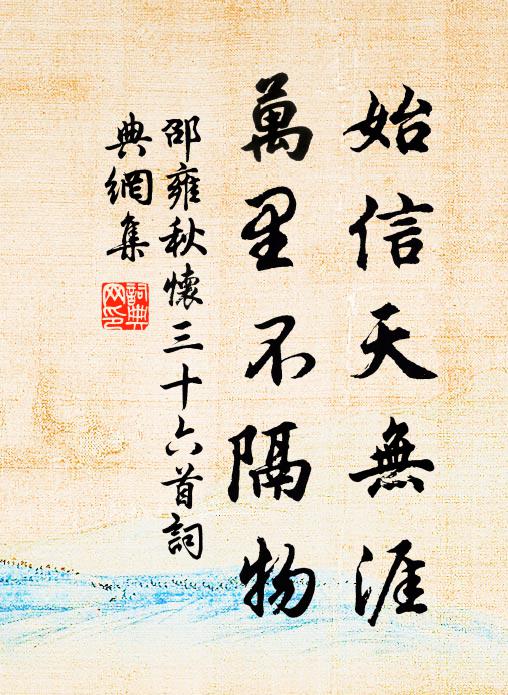 始信天無涯
萬里不隔物
邵雍秋懷三十六首詞
典網集
詞典
网印